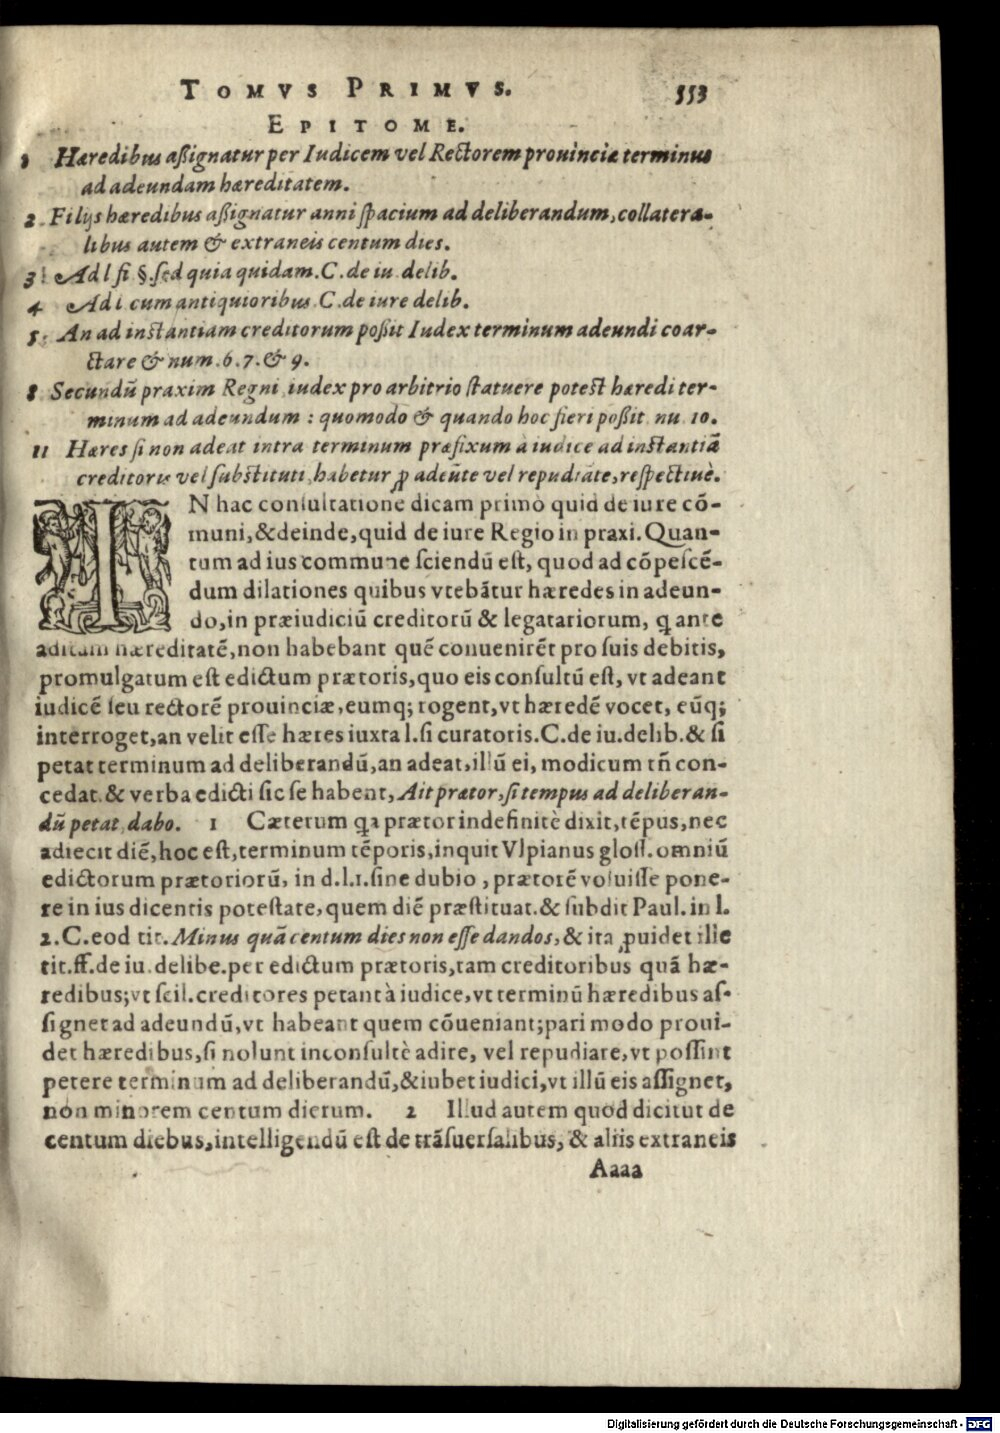 TOMVS PRIMVS. 553
EPITOME.
1 Hæredibus aßignatur per Iudicem vel Rectorem prouinciæ terminus
ad adeundam hæreditatem.
2 Filijs hæredibus aßignatur anni ſpacium ad deliberandum, collatera-
libus autem & extraneis centum dies.
3 Ad l ſi §. ſed quia quidam. C. de iu delib.
4 Ad l cum antiquioribus C. de iure delib.
5 An ad inſtantiam creditorum poßit Iudex terminum adeundi coar-
ctare & num. 6. 7. & 9.
8 Secundũ praxim Regni iudex pro arbitrio ſtatuere poteſt hæredi ter-
minum ad adeundum : quomodo & quando hoc fieri poßit nu 10.
11 Hæres ſi non adeat intra terminum præfixum à iudice ad inſtantiã
creditoris vel ſubſtituti, habetur ꝓ adeũte vel repudiãte, reſpectiuè.
IN hac conſultatione dicam primò quid de iure cõ-
muni, & deinde, quid de iure Regio in praxi. Quan-
tum ad ius commune ſciendũ eſt, quod ad cõpeſcẽ-
dum dilationes quibus vtebãtur hæredes in adeun-
do, in præiudiciũ creditorũ & legatariorum, q ante
aditam hæreditatẽ, non habebant quẽ conuenirẽt pro ſuis debitis,
promulgatum eſt edictum prætoris, quo eis conſultũ eſt, vt adeant
iudicẽ ſeu rectorẽ prouinciæ, eumq; rogent, vt hæredẽ vocet, eũq;
interroget, an velit eſſe hæres iuxta l. ſi curatoris. C. de iu. delib. & ſi
petat terminum ad deliberandũ, an adeat, illũ ei, modicum tñ con-
cedat. & verba edicti ſic ſe habent, Ait prætor, ſi tempus ad deliberan-
dũ petat dabo. 1 Cæterum qa prætor indefinitè dixit, tẽpus, nec
adiecit diẽ, hoc eſt, terminum tẽporis, inquit Vlpianus gloſſ. omniũ
edictorum prætoriorũ, in d. l. 1. ſine dubio, prætorẽ voluiſſe pone-
re in ius dicentis poteſtate, quem diẽ præſtituat. & ſubdit Paul. in l.
2. C. eod tit. Minus quã centum dies non eſſe dandos, & ita ꝓuidet ille
tit. ff. de iu. delibe. per edictum prætoris, tam creditoribus quã hæ-
redibus; vt ſcil. creditores petant à iudice, vt terminũ hæredibus aſ-
ſignet ad adeundũ, vt habeant quem cõueniant; pari modo proui-
det hæredibus, ſi nolunt inconſultè adire, vel repudiare, vt poſſint
petere terminum ad deliberandũ, & iubet iudici, vt illũ eis aſſignet,
non minorem centum dierum. 2 Illud autem quod dicitut de
centum diebus, intelligendũ eſt de trãſuerſalibus, & aliis extraneis
Aaaa
Digitalisierung gefördert durch die Deutsche Forschungsgemeinschaft - DFG